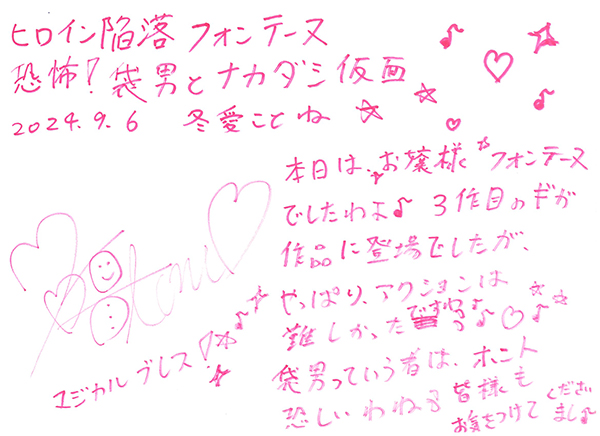 ヒロイン陥落 フォンテーヌ
恐怖！袋男とナカダシ仮面
2024.9.6 冬愛ことね
本日は、お嬢様フォンテーヌ
でしたわよ♪ 3作目のギガ
作品に登場でしたが、
やっぱり、アクションは
難しかったですわっ♪♡
袋男っていう者は、ホント
恐しいわね♪ 皆様も
お気をつけて くださいまし♪
マジカルブレス!